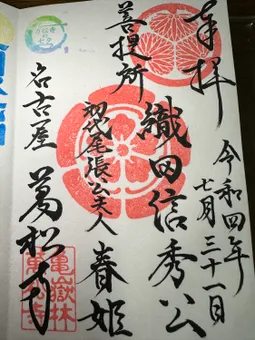 奉拝
令和四年
七月三十一日
織田信秀公
菩提所
初代尾張公夫人
春姫
名古屋
萬松寺
亀嶽林